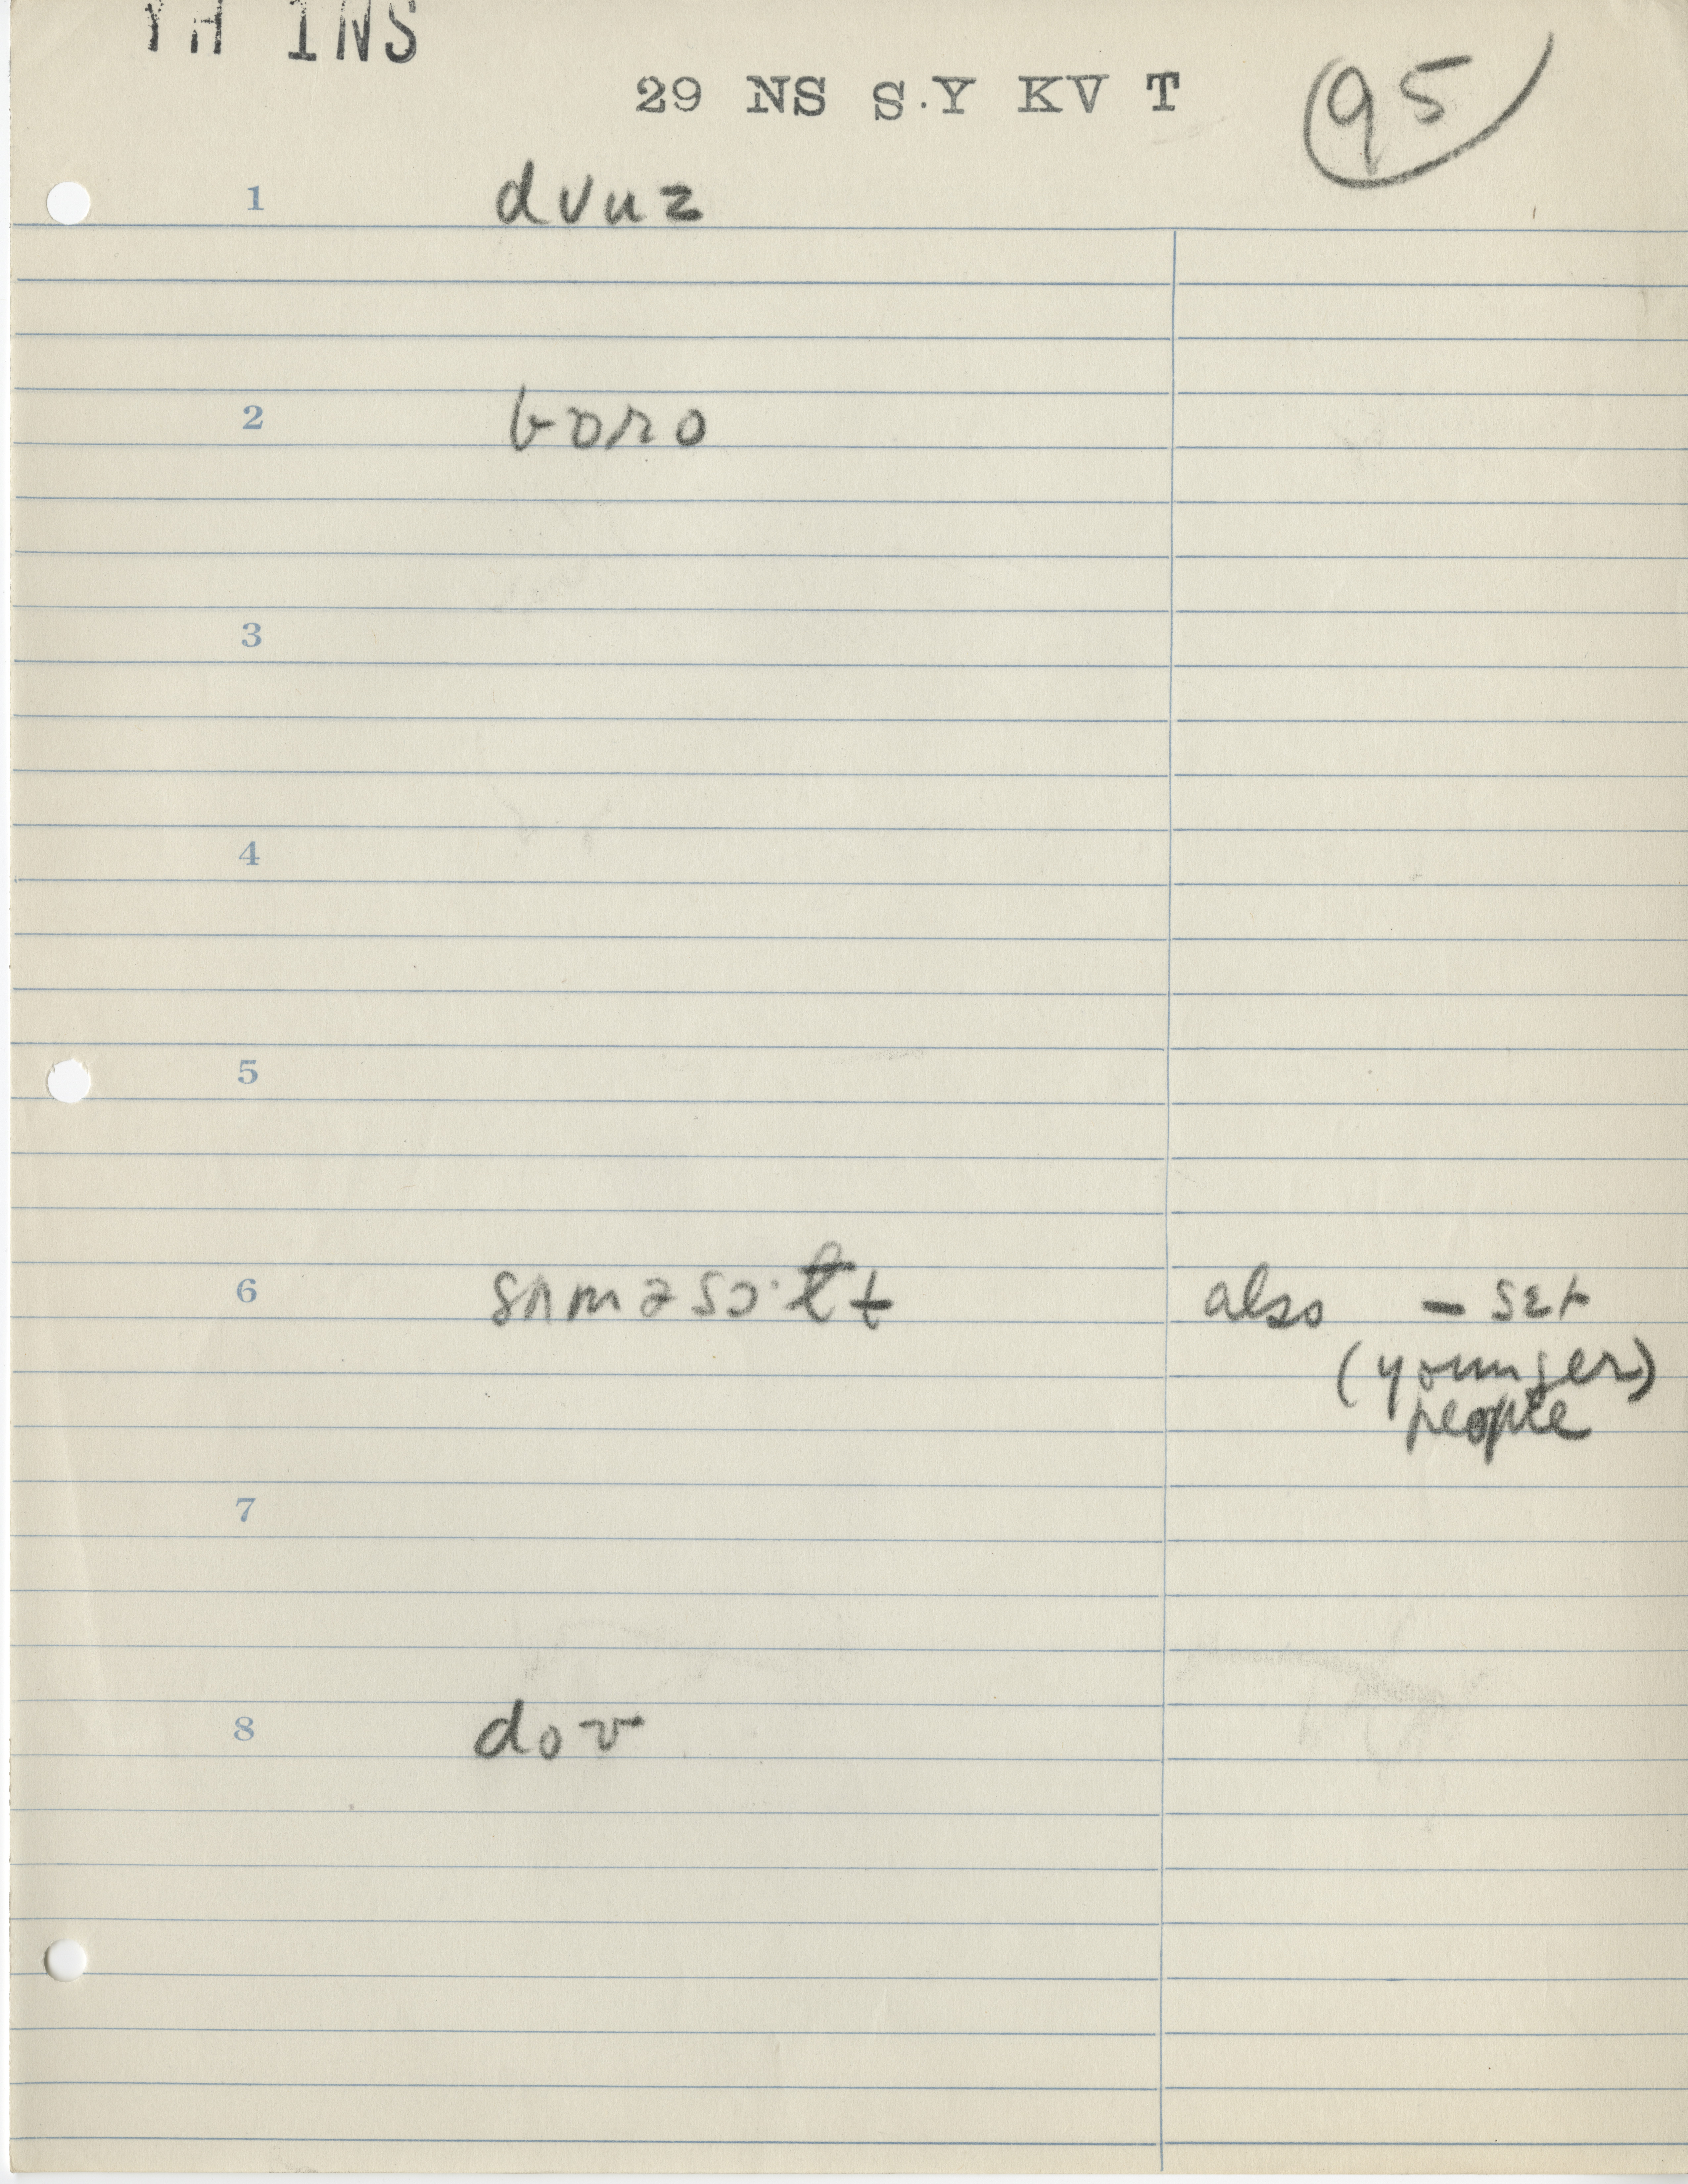 YH 1NS
29 NS S.Y KV T
95
1 dvuz
2 boro
3
4
5
6 also - sɛt
(younger)
people
7
8 dov